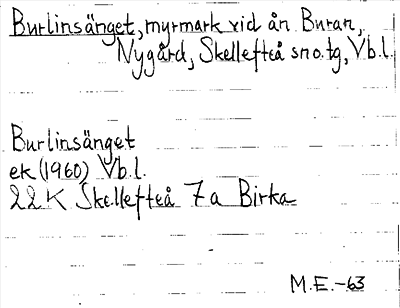 Burlinsänget, myrmark vid ån Buran,
Nygård, Skellefteå sn o. tg, Vb.l.
Burlinsänget
ek (1960) Vb.l.
22 K Skellefteå 7a Birka
M.E.-63